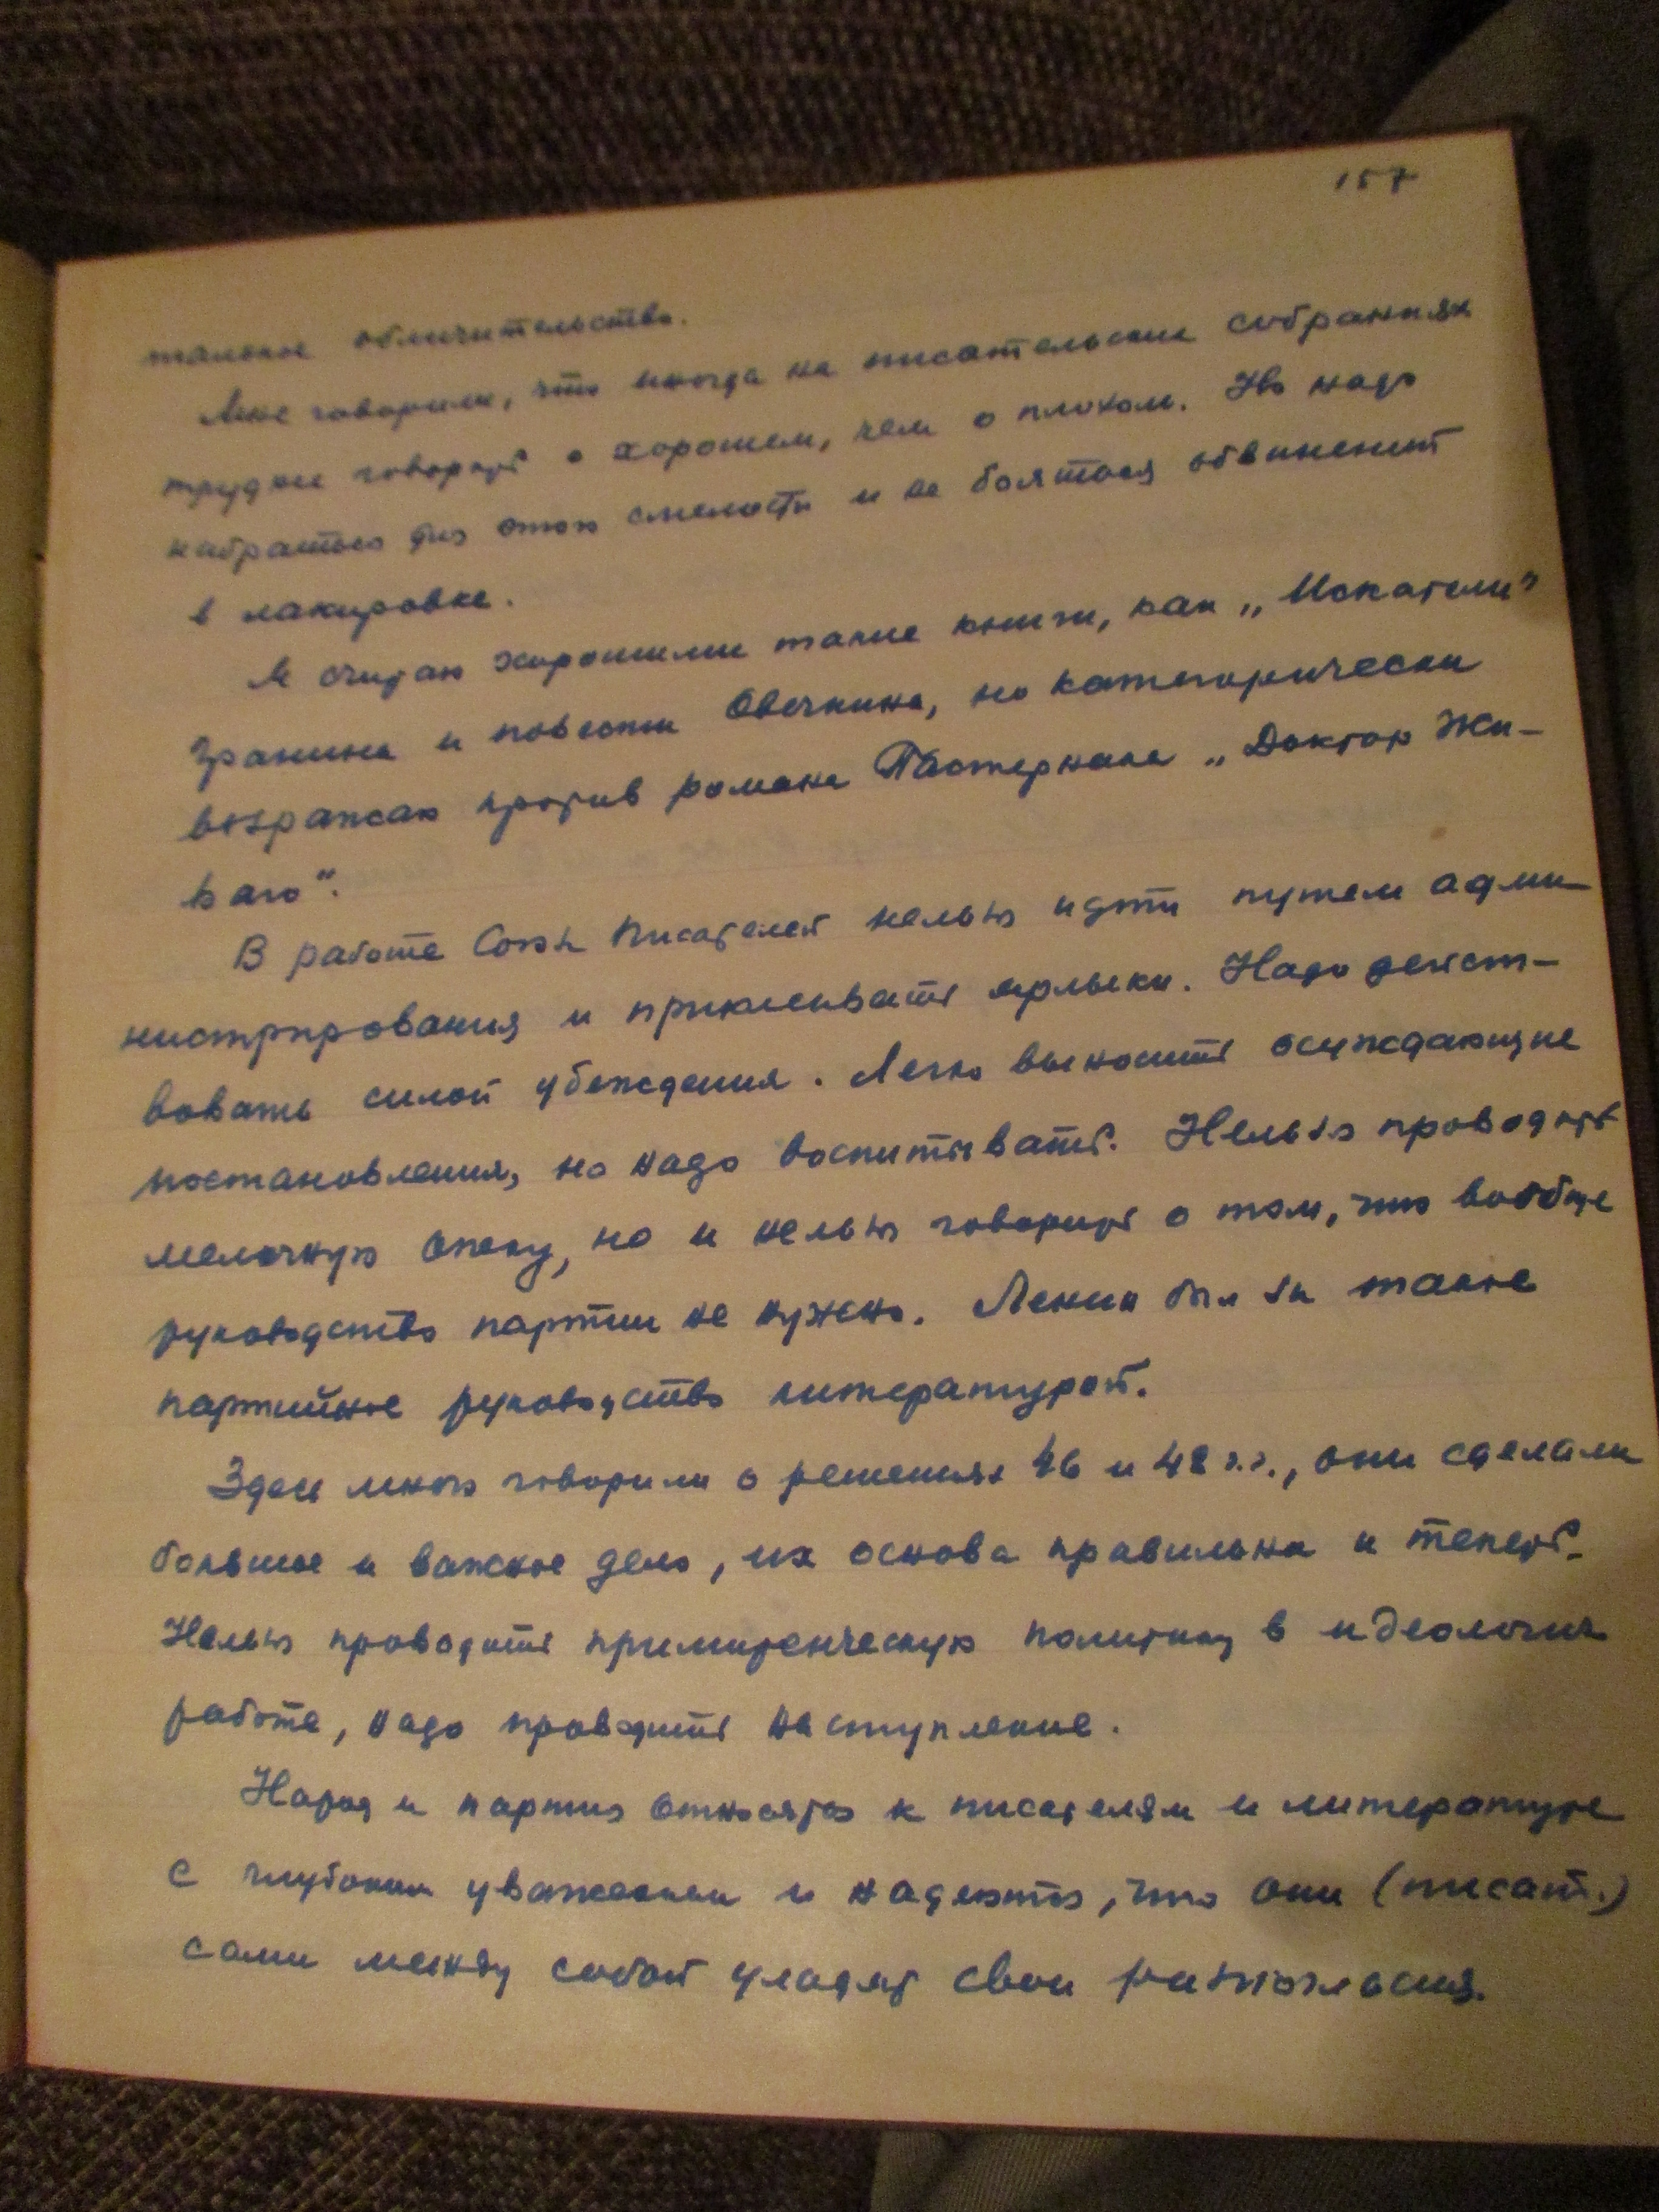 157
тальное обличительство.
Мне говорили, что иногда на писательских собраниях
труднее говорить о хорошем, чем о плохом. Но надо
набраться для этого смелости и не бояться обвинений
в лакировке.
Я считаю хорошими такие книги, как „Искатели"
Гранина и повести Овечкина, но категорически
возражаю против романа Пастернака „Доктор Жи-
ваго".
В работе Союза Писателей нельзя идти путем адми-
нистрирования и приклеивать ярлыки. Надо дейст-
вовать силой убеждения. Легко выносить осуждающие
постановления, но надо воспитывать. Нельзя проводить
мелочную опеку, но и нельзя говорить о том, что вообще
руководство партии не нужно. Ленин был за такое
партийное руководство литературой.
Здесь много говорили о решениях 46 и 48 г.г., они сделали
большое и важное дело, их основа правильна и теперь.
Нельзя проводить примиренческую политику в идеологич.
работе, надо проводить наступление.
Народ и партия относятся к писателям и литературе
с глубоким уважением и надеются, что они (писат.)
сами между собой уладят свои разногласия.